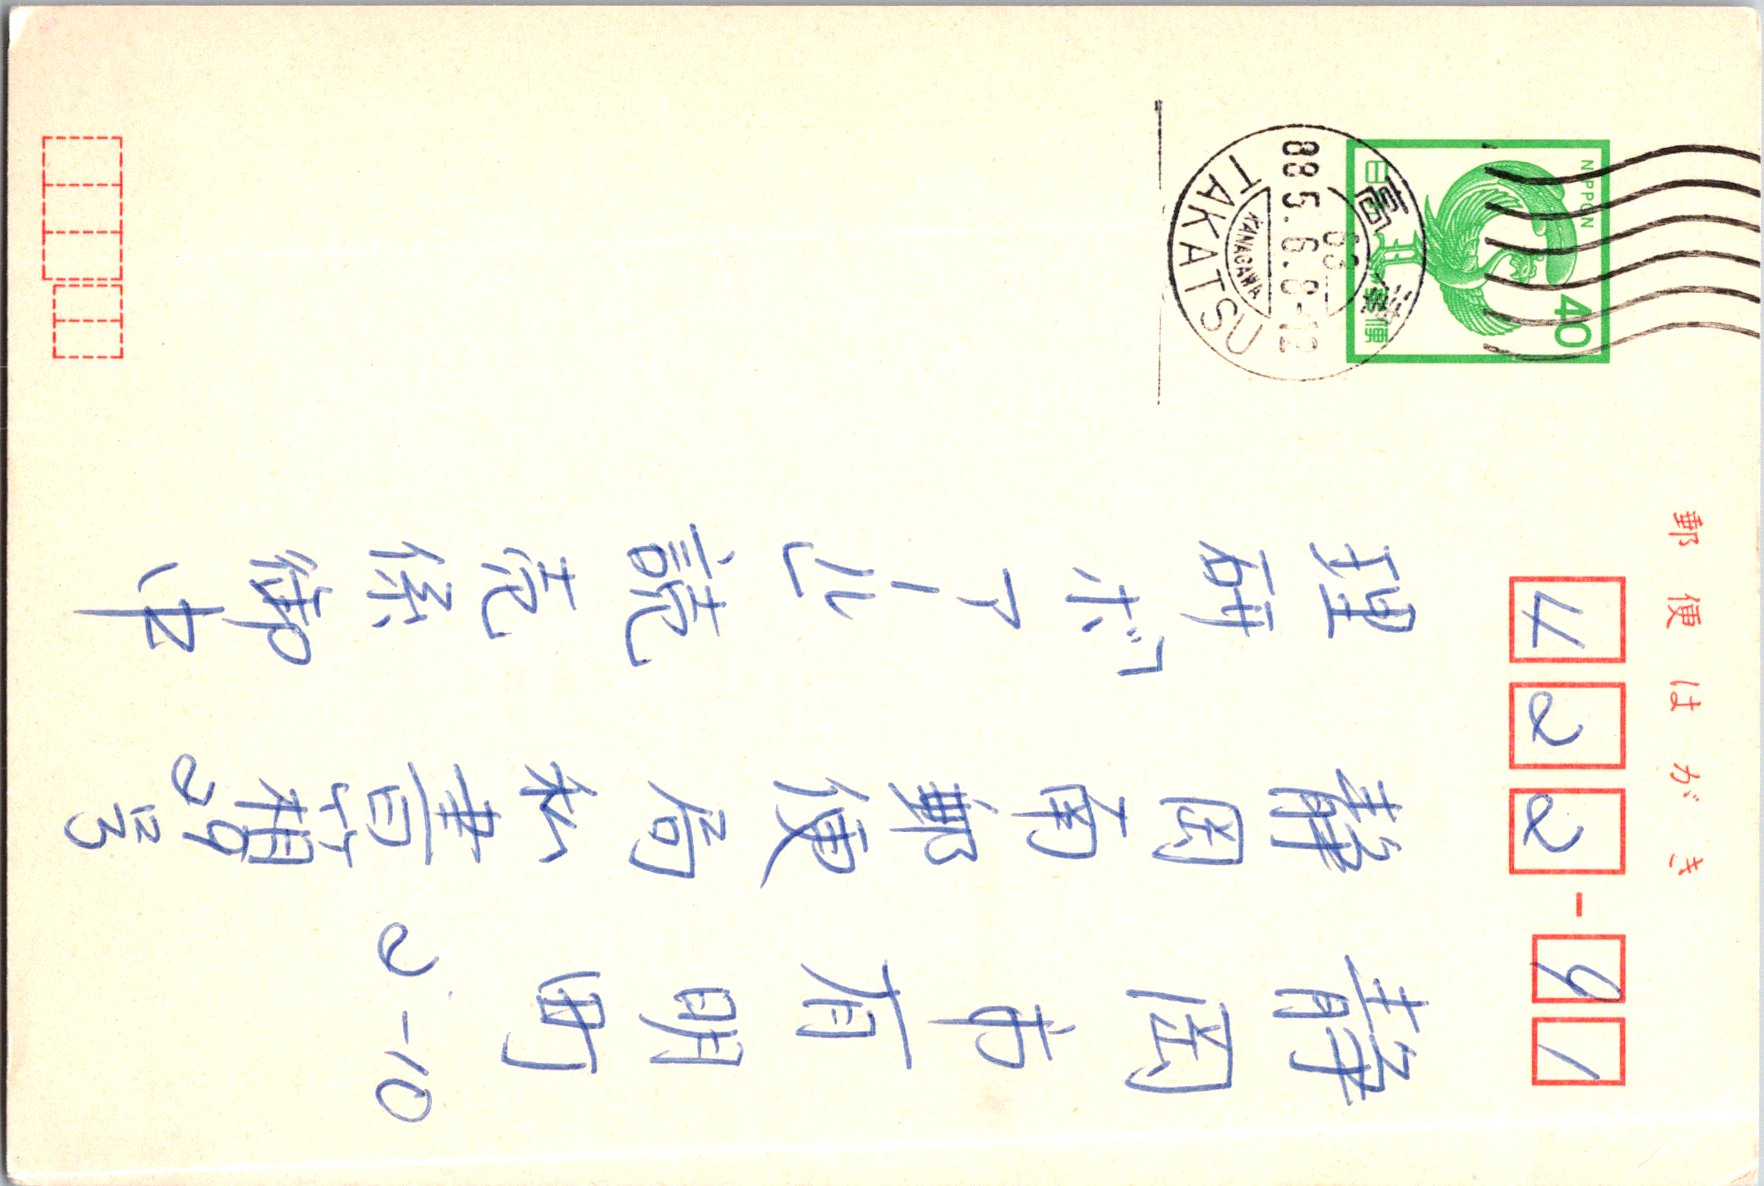 郵便はがき
422-91
NIPPON
40
日本郵便
高津
63
88 5.6.8-12
KANAGAWA
TAKATSU
静岡市有明町2-10
静岡南郵便局私書箱29号
理研 読売係御中